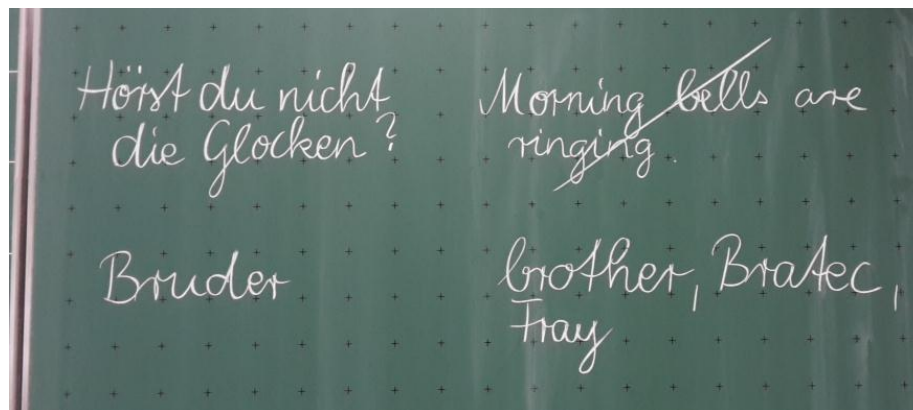 Hörst du nicht
die Glocken?
Morning bells are
ringing.
Bruder
brother, Bratec,
Fray